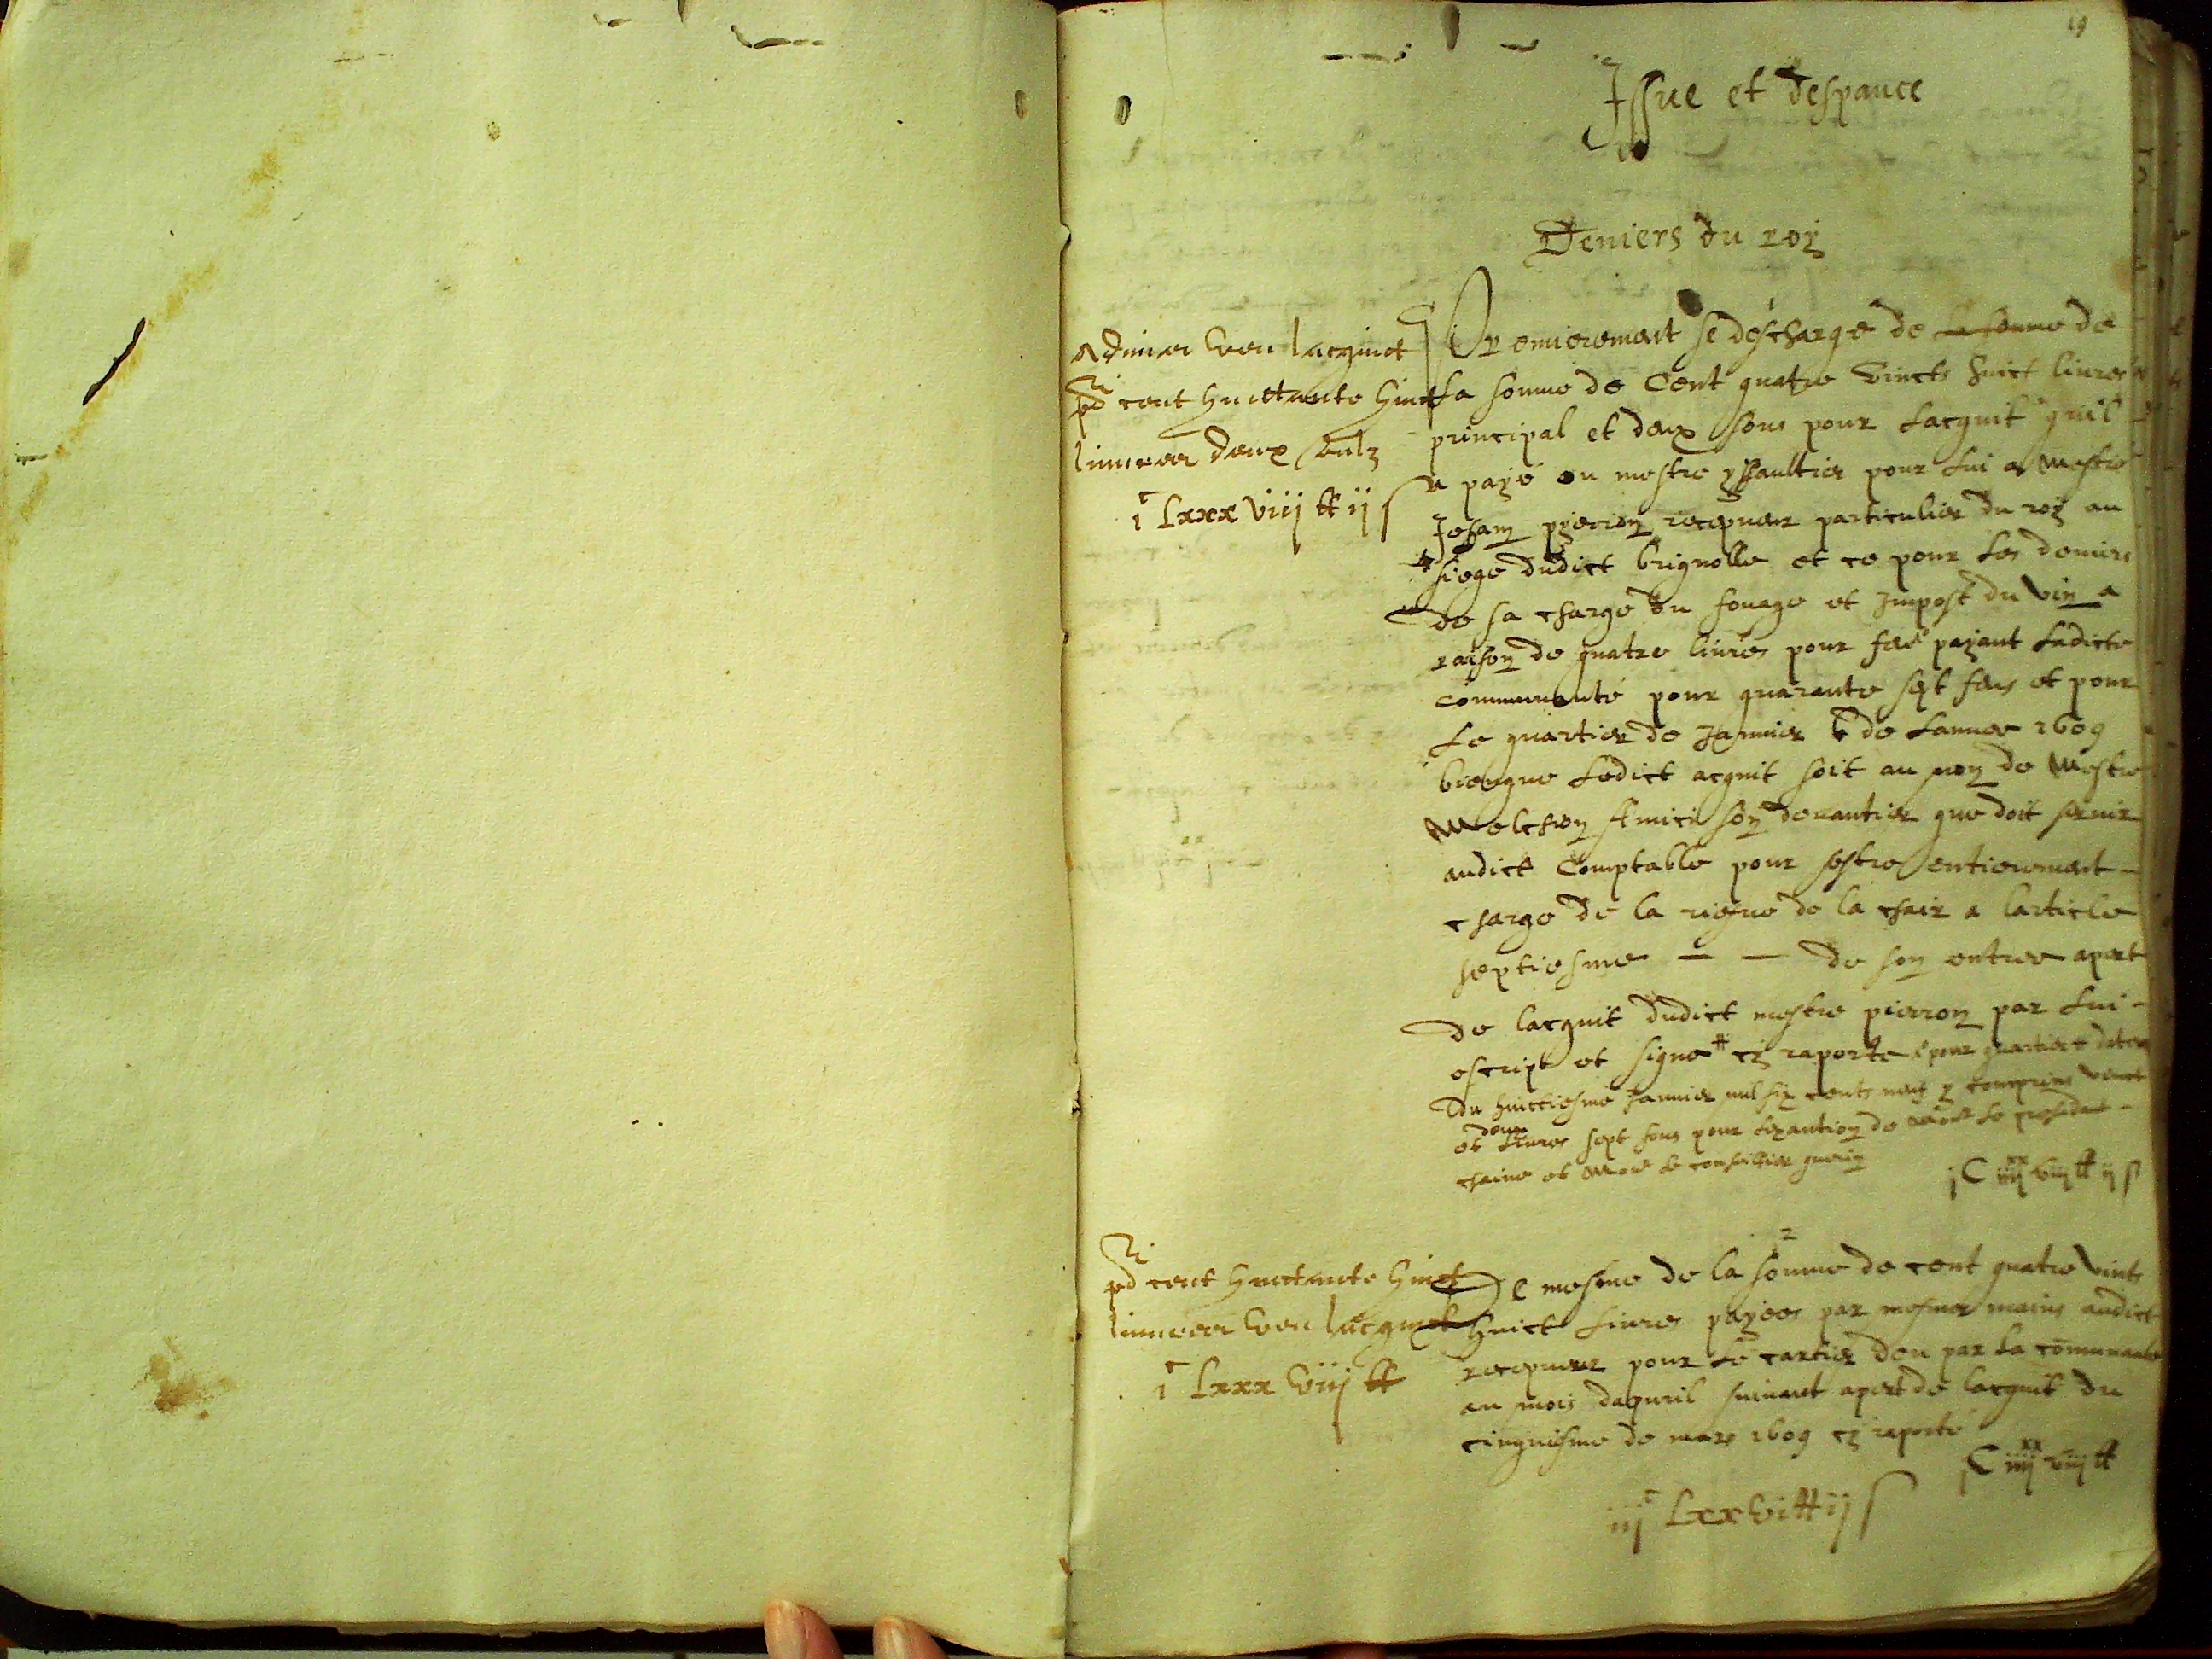 19
Issue et despance
Deniers du roy
Admis veu lacquict
pd cent huittante huict
livres deux soulz
i c Lxxx viij tt ij s
1
Premierement se descharge de la somme de
la somme de Cent quatre vincts huict livres
principal et deux sous pour lacquit quil
a payé ou mestre yssaultier pour lui a mestre
Jehan pierron recepveur particulier du roy au
siege dudict brignolle et ce pour les deniers
de sa charge du fouage et impost du vin a
raison de quatre livres pour feu payant ladicte
communauté pour quarante sept feus et pour
le quartier de Janvier de lannee 1609
bienque ledict acquit soit au nom de mestre
Melchion Amici son devantier que doit servir
audict Comptable pour sestre entierement
chargé de la riesve de la chair a larticle
septiesme — — de son entree apert
de lacquit dudict mestre pierron par lui
escript et signé # cy raporté pour quartier datte
du huictiesme Janvier mil six cents neuf y comprins vinct
et deux livres sept sous pour de monsr le president
chaine et monsr le conseillier guerin
j C iiij xx viij tt ij s
pd cent huittante huict
livres veu lacquict
i c Lxxx viij tt
2
De mesme de la somme de cent quatre vints
huict livres payees par mesmes mains audict
recepveur pour le cartier deu par la communauté
au mois dapvril suivant apert de lacquit du
cinquiesme de mars 1609 cy raporté
j C iiij xx viij tt
iij c Lxxvi tt ij s